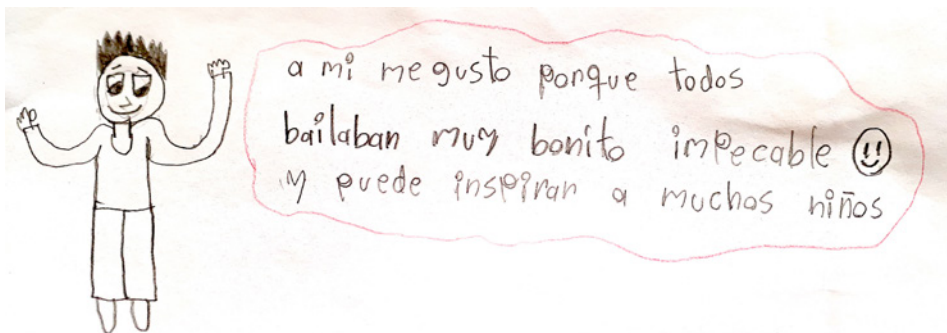 a mi me gusto porque todos
bailaban muy bonito impecable
y puede inspirar a muchos niños